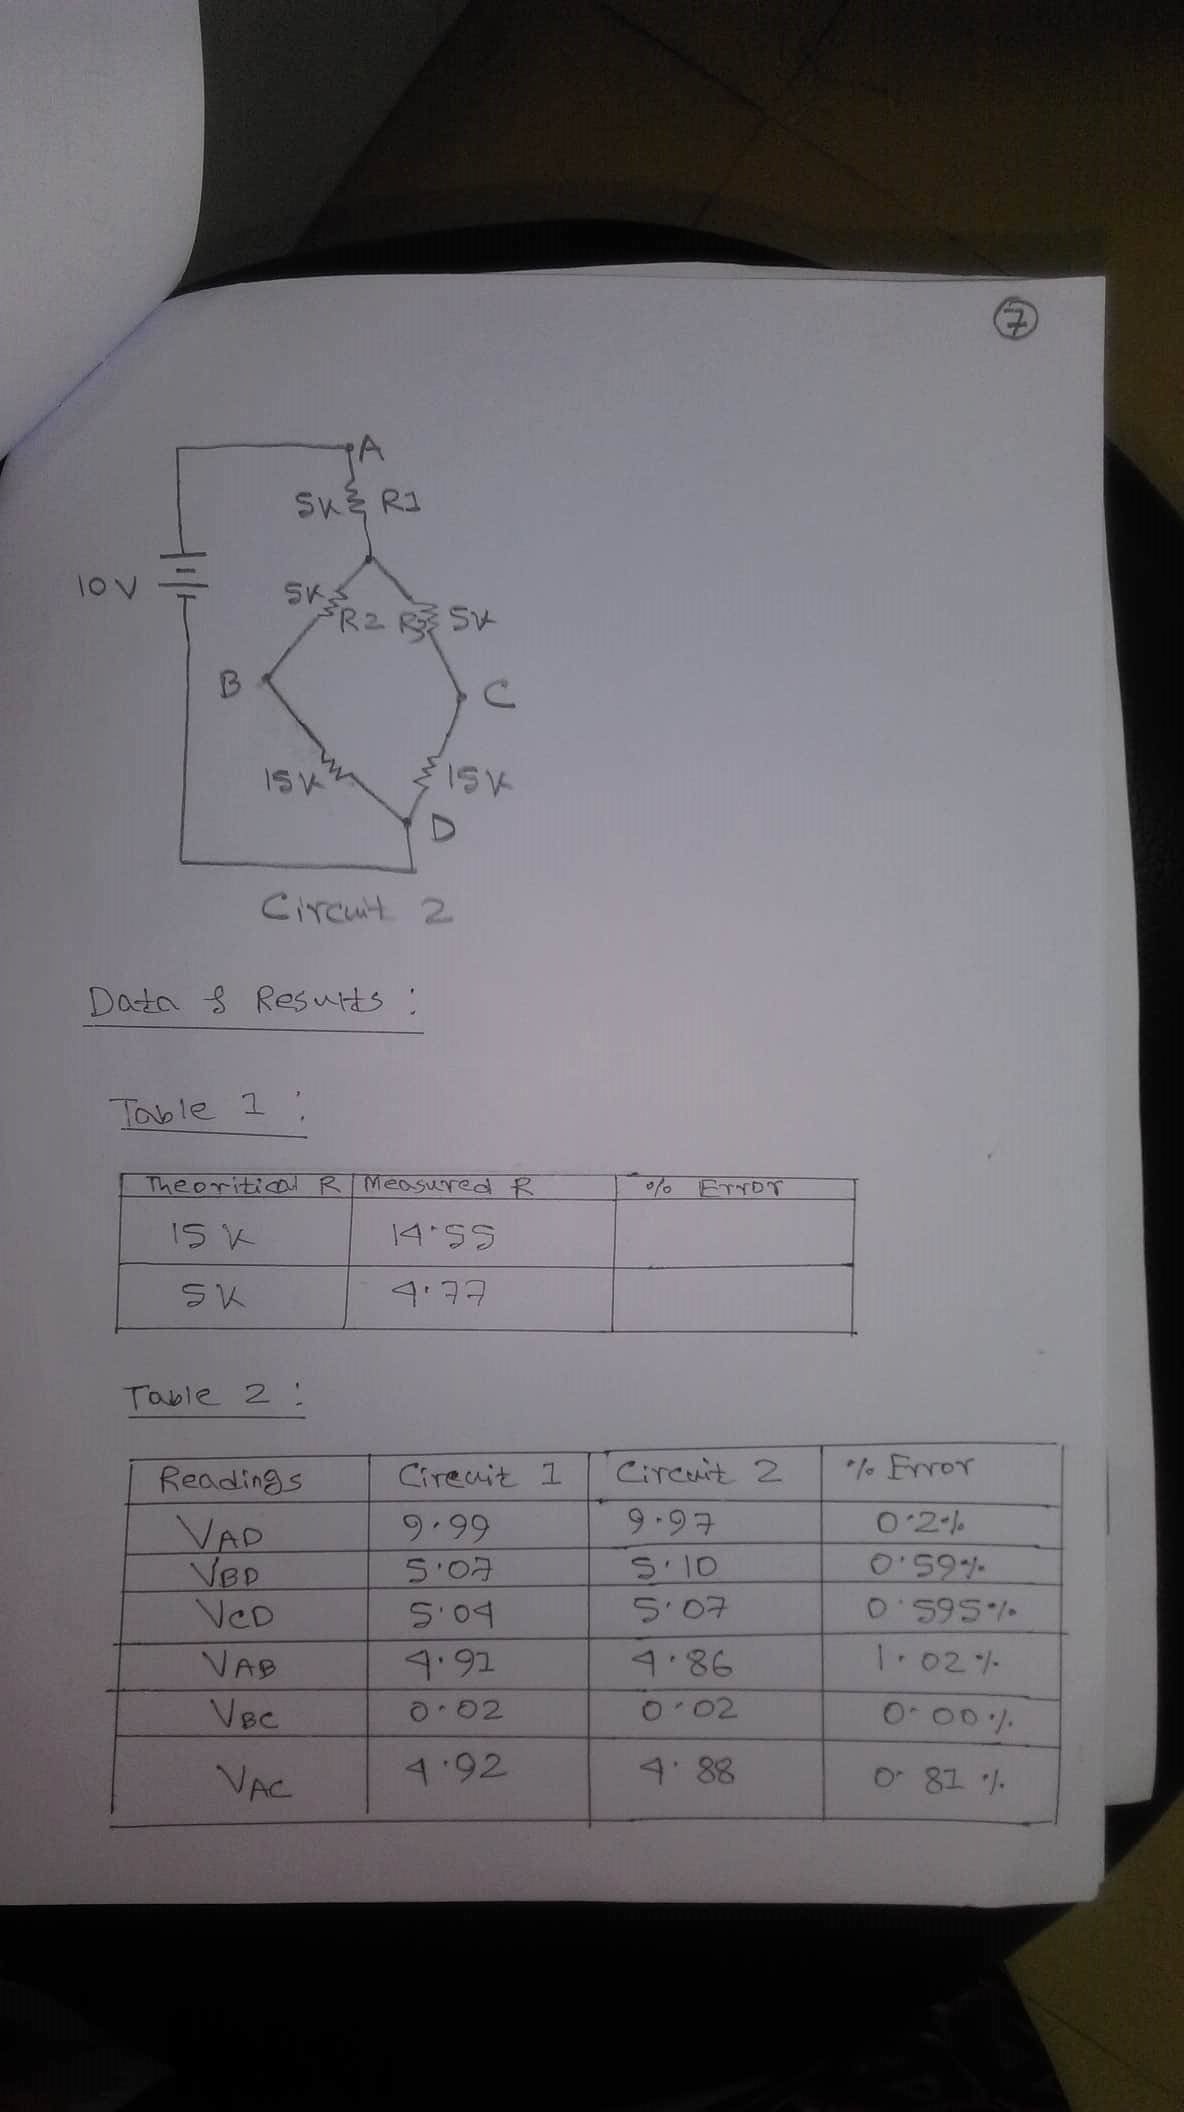 7
A
5K R1
10V
5K
R2 R3 5K
B
C
15K 15K
D
Circuit 2
Data & Results :
Table 1 :
Theoritical R Measured R % Error
15 K 14.55
5K 4.77
Table 2 :
Readings Circuit 1 Circuit 2 % Error
VAD 9.99 9.97 0.2%
VBD 5.07 5.10 0.59%
VCD 5.04 5.07 0.595%
VAB 4.91 4.86 1.02%
VBC 0.02 0.02 0.00%
VAC 4.92 4.88 0.81%